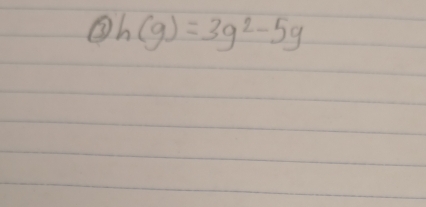 ③h(g)=3g²-5g